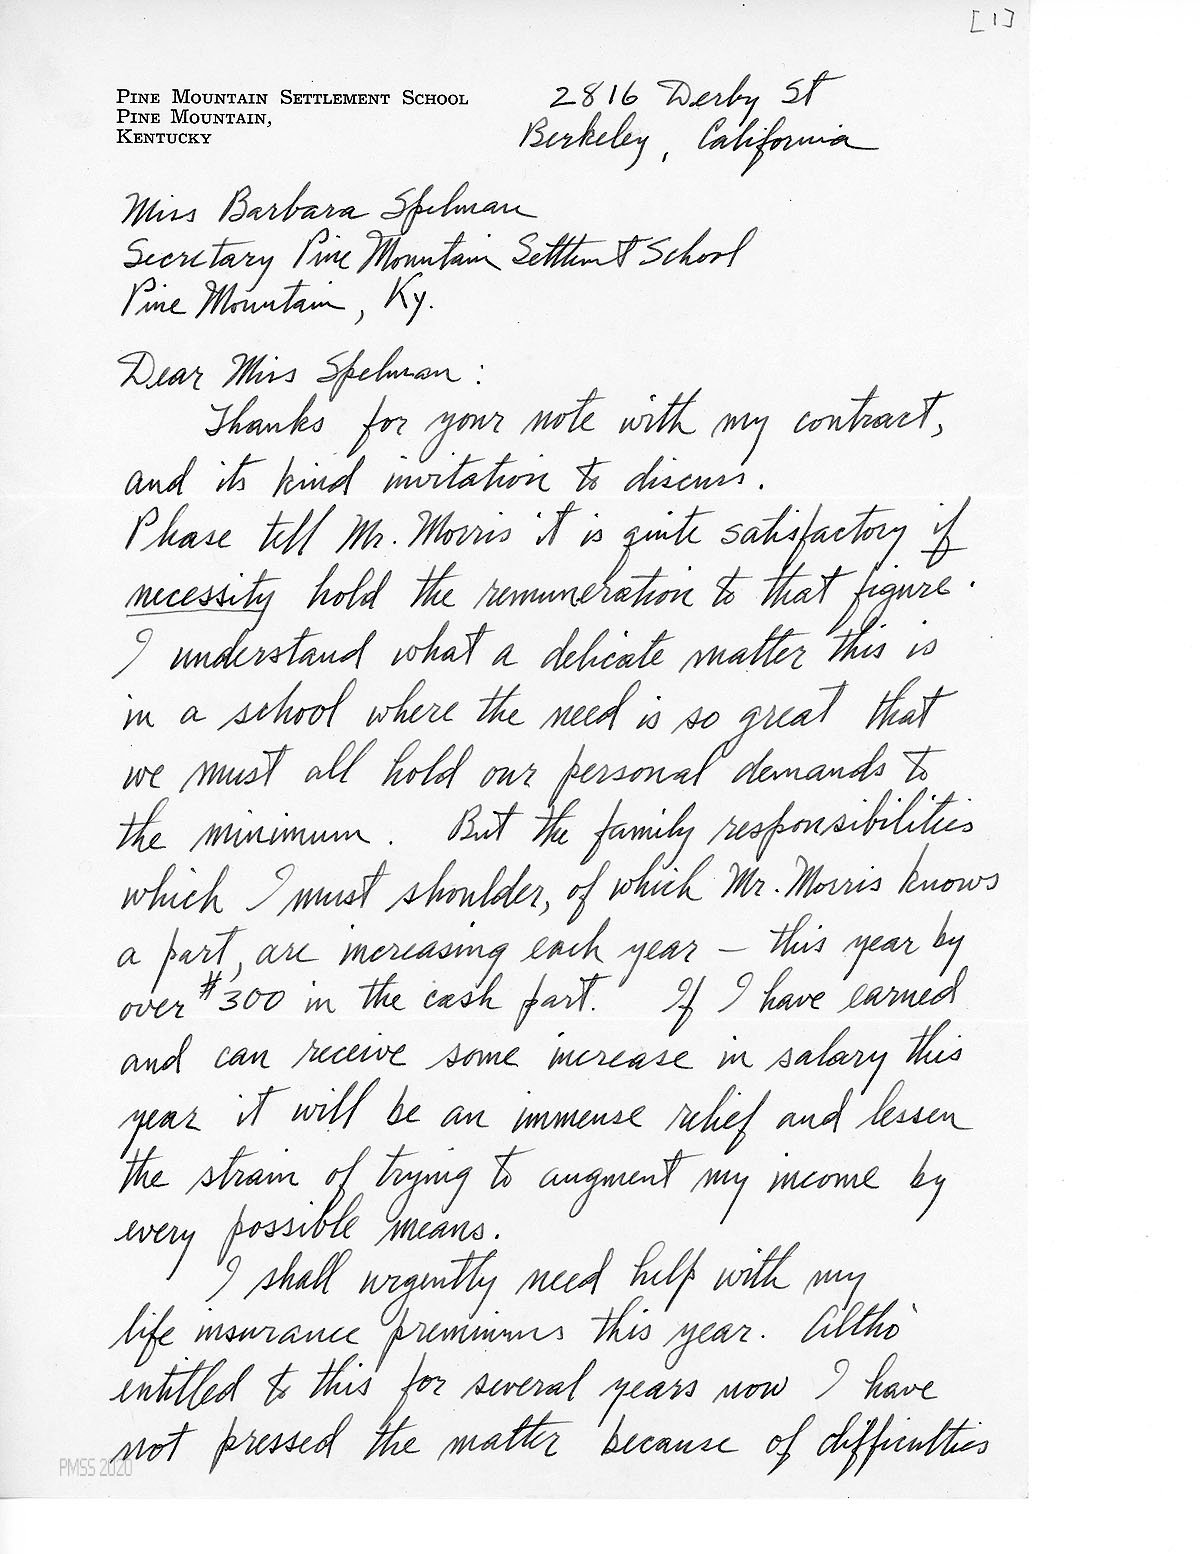 [1]
PINE MOUNTAIN SETTLEMENT SCHOOL
PINE MOUNTAIN,
KENTUCKY
2816 Derby St
Berkeley, California
Miss Barbara Spelman
Secretary Pine Mountain Settlemt School
Pine Mountain, Ky.
Dear Miss Spelman:
Thanks for your note with my contract,
and its kind invitation to discuss.
Please tell Mr. Morris it is quite satisfactory if
necessity hold the remuneration to that figure.
I understand what a delicate matter this is
in a school where the need is so great that
we must all hold our personal demands to
the minimum. But the family responsibilities
which I must shoulder, of which Mr. Morris knows
a part, are increasing each year – this year by
over $300 in the cash part. If I have earned
and can receive some increase in salary this
year it will be an immense relief and lessen
the strain of trying to augment my income by
every possible means.
I shall urgently need help with my
life insurance premiums this year. Altho'
entitled to this for several years now I have
not pressed the matter because of difficulties
PMSS 2020